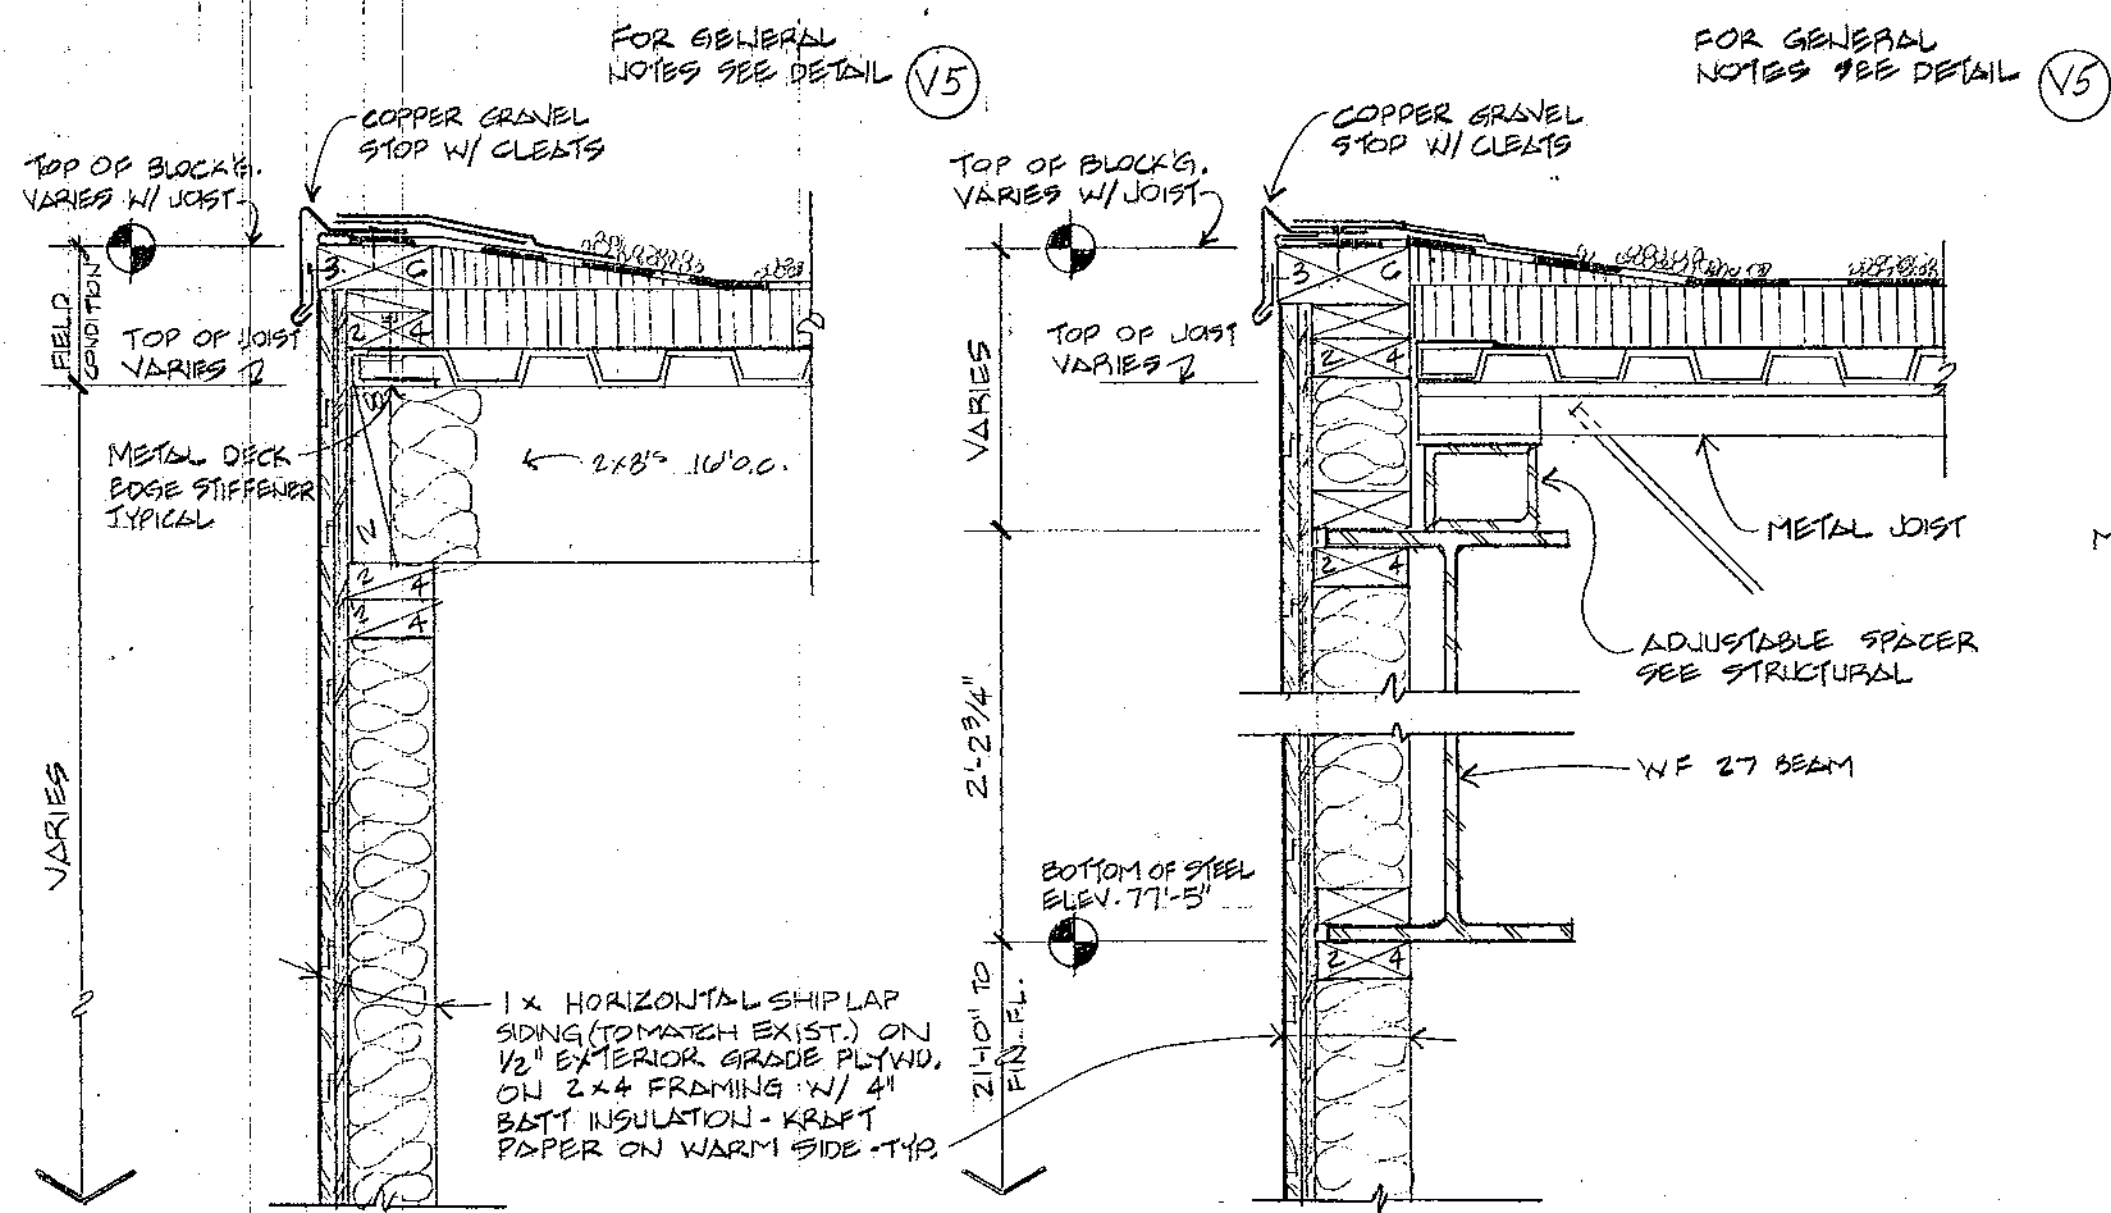 FOR GENERAL
NOTES SEE DETAIL
V5
COPPER GRAVEL
STOP W/ CLEATS
TOP OF BLOCK'G.
VARIES W/ JOIST
FIELD
CONDITION
TOP OF JOIST
VARIES
3 6
2 4
METAL DECK
EDGE STIFFENER
TYPICAL
8
2
2x8'S 16"O.C.
2 4
2 4
VARIES
1 x HORIZONTAL SHIPLAP
SIDING (TO MATCH EXIST.) ON
1/2" EXTERIOR GRADE PLYWD.
ON 2x4 FRAMING W/ 4"
BATT INSULATION - KRAFT
PAPER ON WARM SIDE - TYP.
FOR GENERAL
NOTES SEE DETAIL
V5
COPPER GRAVEL
STOP W/ CLEATS
TOP OF BLOCK'G.
VARIES W/ JOIST
3 6
TOP OF JOIST
VARIES
2 4
VARIES
METAL JOIST
2 4
ADJUSTABLE SPACER
SEE STRUCTURAL
2'-2 3/4"
WF 27 BEAM
BOTTOM OF STEEL
ELEV. 77'-5"
2 4
21'-10" TO
FIN. FL.